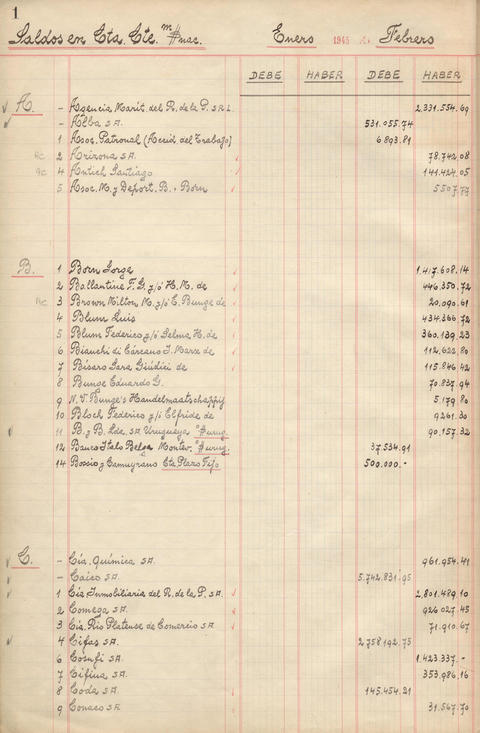 1
Saldos en Cta. Cte. m$nac. Enero 1945 Febrero
DEBE HABER DEBE HABER
A - Agencia Marit. del R. de la P. S.R.L. 2.331.554.69
- Alba S.A. 531.055.74
1 Asoc. Patronal (Accid. del Trabajo) 6893.81
2 Arizona S.A. 78.742.08
4 Antich Santiago 141.424.05
5 Asoc. M. y Deport. B. y Born 5507.77
B. 1 Born Jorge 1.417.608.14
2 Ballantine F. G. y/ó H. M. de 446.350.72
3 Brown Milton M. y/ó E. Bunge de 20.090.61
4 Blum Luis 434.366.72
5 Blum Federico y/ó Selma H. de 360.139.23
6 Bianchi di Cárcano J. Marx de 112.622.80
7 Bísaro Sara Giúdici de 115.846.42
8 Bunge Eduardo G. 70.837.94
9 N.V. Bunge's Handelmaatschappij 5179.80
10 Bloch Federico y/ó Elfride de 9261.30
11 B. y B. Lda. S.A. Uruguaya $urug. 90.157.32
12 Banco Italo Belga Montev. $urug. 37.534.91
14 Bossio y Camuyrano Cta Plazo Fijo 500.000.-
C. - Cía. Química S.A. 961.954.41
- Caico S.A. 5.742.831.95
1 Cía Inmobiliaria del R. de la P. S.A. 2.801.489.10
2 Comega S.A. 926.027.45
3 Cía. Rio Platense de Comercio S.A. 71.910.67
4 Cifas S.A. 2.758.192.75
6 Corufi S.A. 1.423.337.-
7 Cifina S.A. 353.986.16
8 Coda S.A. 145.454.21
9 Conaco S.A. 31.567.70